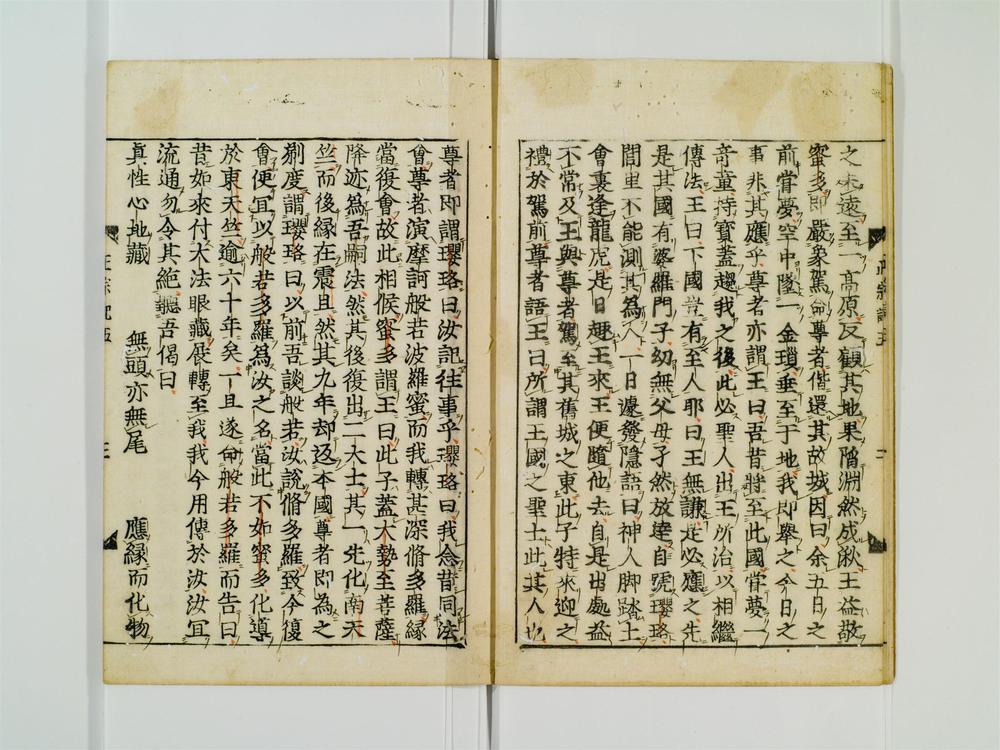 之未遠至一高原反觀其地果陷淵然成湫王益敬
蜜多即嚴象駕命尊者偕還其故城因曰余五日之
前甞夢空中墜一金瑣垂至于地我即舉之今日之
事非其應乎尊者亦謂王曰吾昔將至此國甞夢一
竒童持寶蓋趨我之後此必聖人出王所治以相繼
傳法王曰下國豈有至人耶曰王無謙是必應之先
是其國有婆羅門子幼無父母孑然放達自號瓔珞
閭里不能測其為人一日遽發隱語曰神人脚踏土
會裏逢龍虎是日趣王來王便隨他去自是出處益
不常及王與尊者駕至其舊城之東此子特來迎之
禮於駕前尊者語王曰所謂王國之聖士此其人也
尊者即謂瓔珞曰汝記往事乎瓔珞曰我念昔同法
會尊者演摩訶般若波羅蜜而我轉甚深脩多羅緣
當復會故此相候蜜多謂王曰此子蓋大勢至菩薩
降迹為吾嗣法然其後復出二大士其一先化南天
竺而後緣在震旦然其九年却返本國尊者即為之
剃度謂瓔珞曰以前吾談般若汝說脩多羅致今復
會便宜以般若多羅為汝之名當此不如蜜多化導
於東天竺逾六十年矣一旦遂命般若多羅而告曰
昔如來付大法眼藏展轉至我我今用傳於汝汝宜
流通勿令其絕聽吾偈曰
真性心地藏　無頭亦無尾　應緣而化物